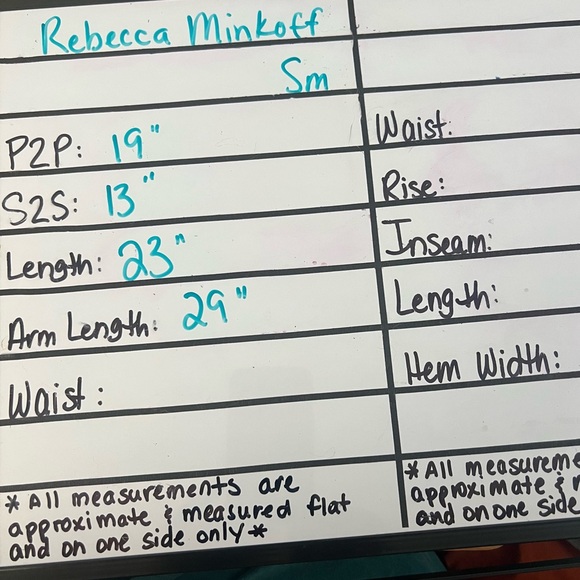 Rebecca Minkoff
Sm
P2P: 19"
S2S: 13"
Length: 23"
Arm Length: 29"
Waist:
*All measurements are
approximate & measured flat
and on one side only*
Waist:
Rise:
Inseam:
Length:
Hem Width:
*All measureme
approximate &
and on one side